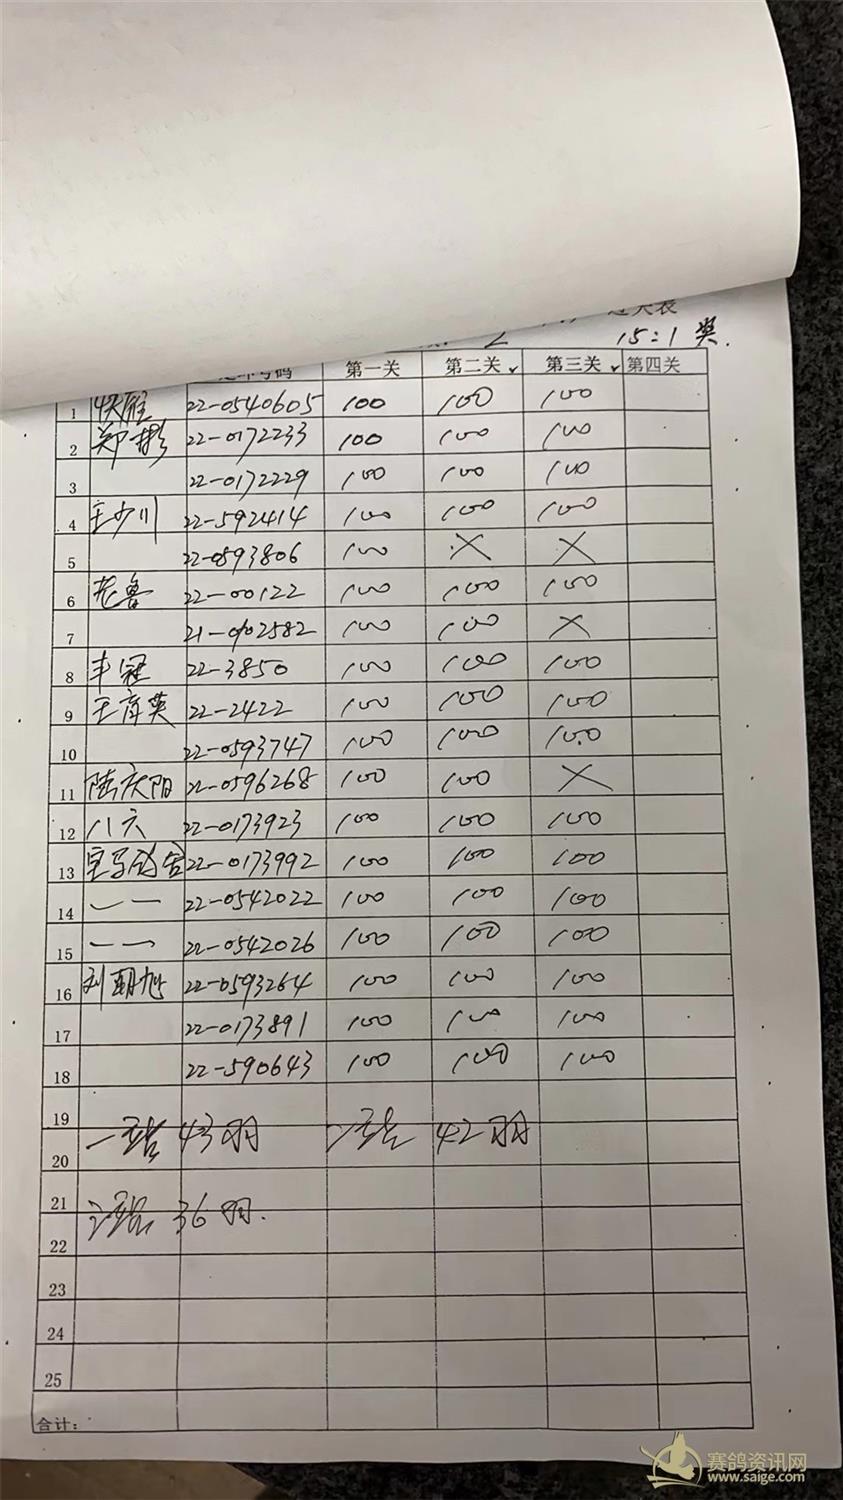 2 15:1 奖.
第一关 第二关 第三关 第四关
1 22-0540605 100 100 100
2 郑彬 22-0172233 100 100 100
3 22-0172229 100 100 100
4 王少川 22-592414 100 100 100
5 22-0593806 100 × ×
6 老鲁 22-00122 100 100 100
7 21-0102582 100 100 ×
8 丰冠 22-3850 100 100 100
9 22-2422 100 100 100
10 22-0593747 100 100 100
11 陆庆阳 22-0596268 100 100 ×
12 八六 22-0173923 100 100 100
13 宝马鸽舍 22-0173992 100 100 100
14 一一 22-0542022 100 100 100
15 一一 22-0542026 100 100 100
16 刘朝旭 22-0593264 100 100 100
17 22-0173891 100 100 100
18 22-590643 100 100 100
19
一站 43羽 二站 42羽
20
21
三站 36羽.
22
23
24
25
合计:
赛鸽资讯网
www.saige.com